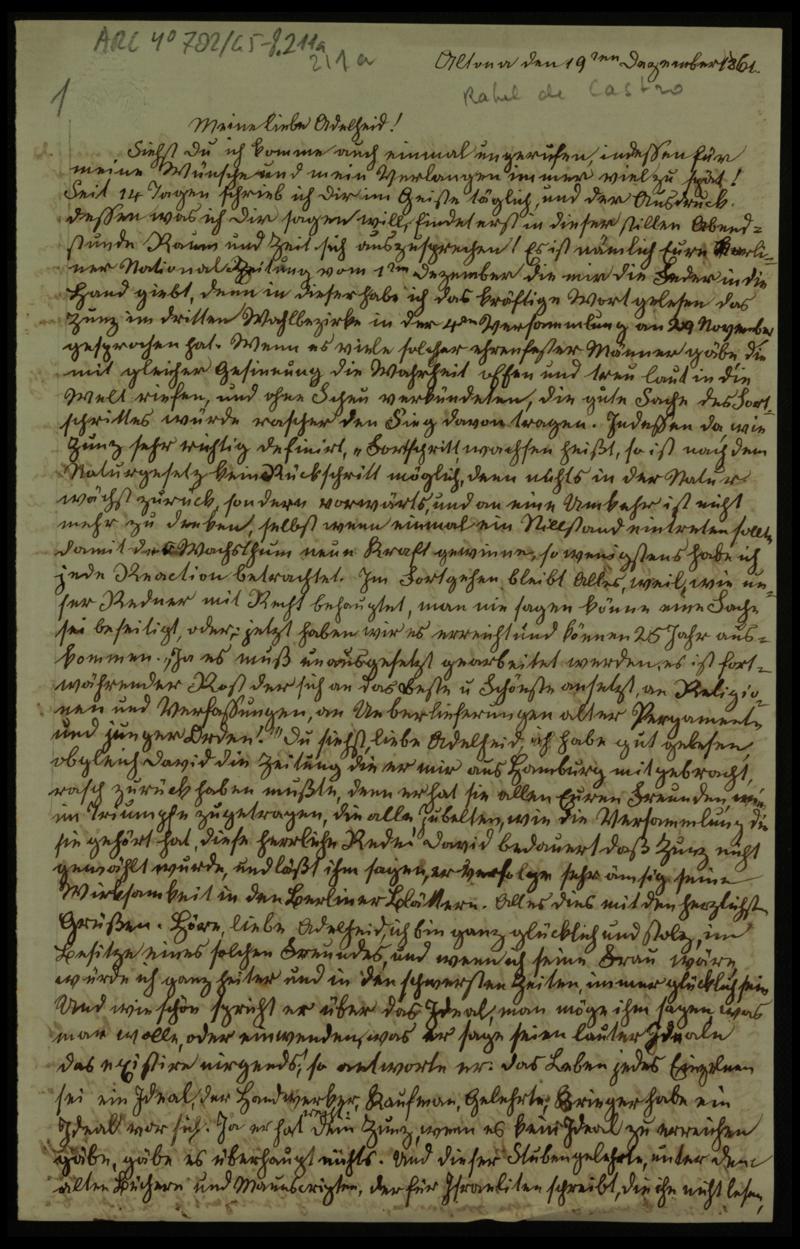 ARC 4° 792/G5-8.211a
211a
Altona den 19ten Dezember 1861.
Rahel de Castro
1
Meine liebe Adelheid!
Siehst Du ich komme auch einmal ungerufen, indessen für
meine Wünsche und mein Verlangen immer viel zu spät!
Seit 14 Tagen schrieb ich Dir im Geiste täglich, und der Ausdruck
dessen was ich Dir sagen will, findet erst in dieser stillen Abend=
stunde Raum und Zeit sich auszusprechen! Es ist nämlich Eure Berli=
ner National Zeitung vom 1ten Dezember die mir die Feder in die
Hand giebt, denn in dieser habe ich das kräftige Wort gelesen das
Zunz im dritten Wahlbezirke in der 4ten Versammlung am November
gesprochen hat. Wenn es viele solcher ehrenfester Männer gäbe, die
mit gleicher Gesinnung die Wahrheit offen und treu laut in die
Welt riefen, und ohne Scheu verkündeten, die gute Sache des Fort=
schrittes würde rascher den Sieg davon tragen. Indessen da, wie
Zunz sehr richtig definirt, „Fortschritt wachsen heißt, so ist nach dem
Naturgesetz kein Rückschritt möglich, denn nichts in der Natur
wächst zurück, sondern vorwärts, und an eine Umkehr ist nicht
mehr zu denken, selbst wenn einmal ein Stillstand eintreten sollte,
damit das Wachsthum neue Kraft gewinne, so wenigstens habe ich
jede Reaction betrachtet. Im Fortgehen bleibt Alles, weil, wie un=
ser Redner mit Recht behauptet, man nie sagen könne eine Sache
sei beseitigt, oder: jetzt haben wir es erreicht und können 25 Jahr aus=
kommen. „Ja es muß unausgesetzt gearbeitet werden, es ist fort=
währender Rost der sich an das Beste u Schönste ansetzt, an Religio=
nen und Verfassungen, an Ueberlieferungen alter Pergamente
und junger Orden!" Du siehst, liebe Adelheid, ich habe gut gelesen,
obgleich David die Zeitung die er mir aus Hamburg mitgebracht,
rasch zurück haben mußte, denn er hat sie allen Euren Freunden, wie
im Triumpfe zugetragen, die alle jubelten, wie die Versammlung die
sie gehört hat, diese herrliche Rede! David bedauert daß Zunz nicht
gewählt wurde, und läßt ihm sagen, er verfolge sehr ämsig seine
Wirksamkeit in den Berliner Blättern. Alles dies mit den herzlichst
Grüßen. Höre, liebe Adelheid, ich bin ganz glücklich und stolz, im
Besitze eines solchen Freundes, und wenn ich seine Frau wäre,
würde ich ganz heiter und in den schwersten Zeiten, immer glücklich sein
Und wie schön spricht er über das Ideal, man möge ihm sagen was
man wolle, oder einwenden, was er sage seien lauter Ideale
das existire nirgends, so antworte er: das Leben jedes Einzelnen
sei ein Ideal, der Handwerker, Kaufman, Gelehrte, Krieger habe ein
Ideal vor sich. Ja er hat recht Dein Zunz, wenn es kein Ideal zu erreichen
gäbe, gäbe es überhaupt nichts. Und dieser Stubengelehrte, unter den
alten Büchern und Manuscripten, der für Israeliten schreibt, die ihn nicht lesen,